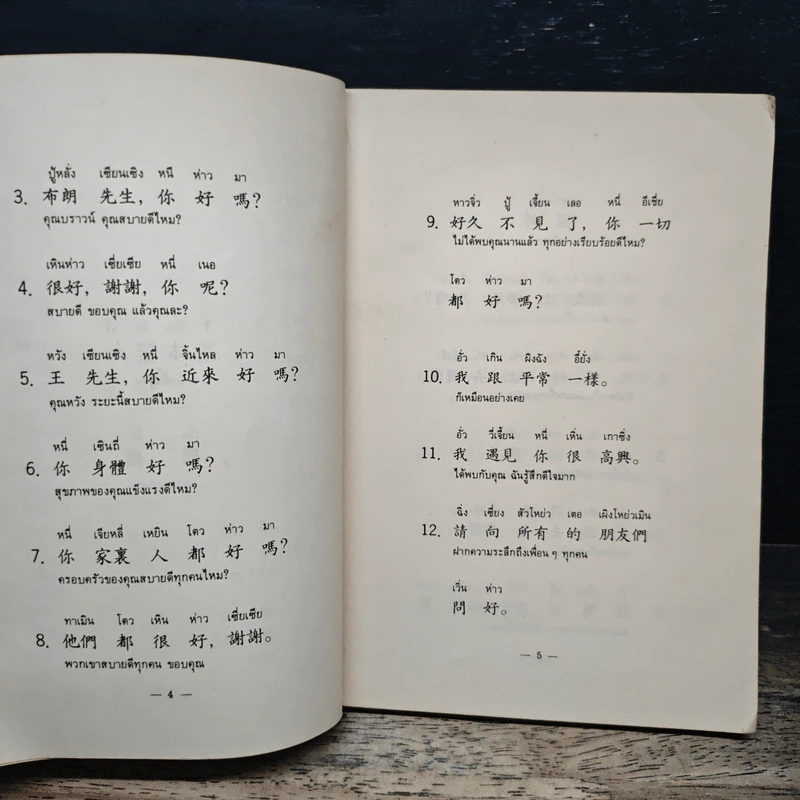 ปู้หลั่ง เซียนเซิง หนี ห่าว มา
3. 布朗 先生, 你 好 嗎?
คุณบราวน์ คุณสบายดีไหม?
เหินห่าว เซี่ยเซีย หนี่ เนอ
4. 很好, 謝謝, 你 呢?
สบายดี ขอบคุณ แล้วคุณละ?
หวัง เซียนเซิง หนี่ จิ้นไหล ห่าว มา
5. 王 先生, 你 近來 好 嗎?
คุณหวัง ระยะนี้สบายดีไหม?
หนี่ เซินถี่ ห่าว มา
6. 你 身體 好 嗎?
สุขภาพของคุณแข็งแรงดีไหม?
หนี่ เจียหลี่ เหยิน โตว ห่าว มา
7. 你 家裏 人 都 好 嗎?
ครอบครัวของคุณสบายดีทุกคนไหม?
ทาเมิน โตว เหิน ห่าว เซี่ยเซีย
8. 他們 都 很 好, 謝謝。
พวกเขาสบายดีทุกคน ขอบคุณ
— 4 —
หาวจิ่ว ปู้ เจี้ยน เลอ หนี่ อีเชี่ย
9. 好久 不 見 了, 你 一切
ไม่ได้พบคุณนานแล้ว ทุกอย่างเรียบร้อยดีไหม?
โตว ห่าว มา
都 好 嗎?
อั่ว เกิน ผิงฉัง อี๋ยั่ง
10. 我 跟 平常 一樣。
ก็เหมือนอย่างเคย
อั่ว วี่เจี้ยน หนี่ เหิ่น เกาซิ่ง
11. 我 遇見 你 很 高興。
ได้พบกับคุณ ฉันรู้สึกดีใจมาก
ฉิ่ง เซี่ยง สัวโหย่ว เตอ เผิงโหย่วเมิน
12. 請 向 所有 的 朋友們
ฝากความระลึกถึงเพื่อน ๆ ทุกคน
เวิ่น ห่าว
問 好。
— 5 —